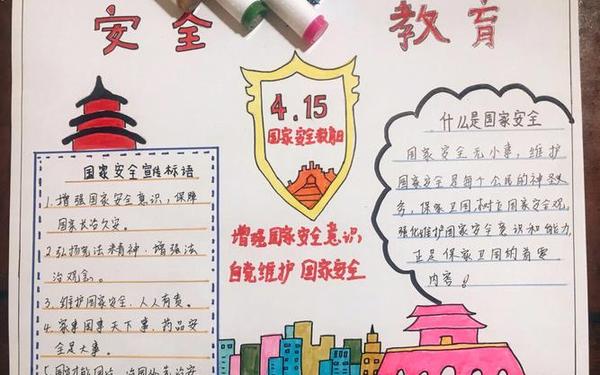 安全
教育
4.15
国家安全教育日
增强国家安全意识,
自觉维护 国家安全
国家安全宣传标语
1. 增强国家安全意识,保障
国家长治久安。
2. 弘扬宪法精神,增强法
治观念。
3. 维护国家安全,人人有责。
4. 家事国事天下事,药品安
全是大事。
什么是国家安全
国家安全无小事,维护
国家安全是每个公民的神圣义
务,保家卫国,树立国家安全观,
强化维护国家安全意识和能力,
正是保家卫国的首要
内容。